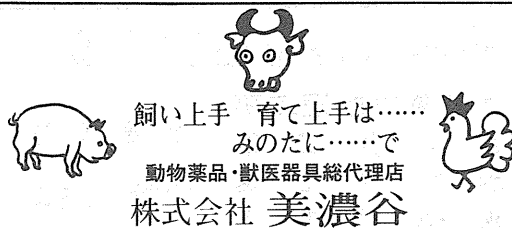 飼い上手　育て上手は……
みのたに……で
動物薬品・獣医器具総代理店
株式会社 美濃谷